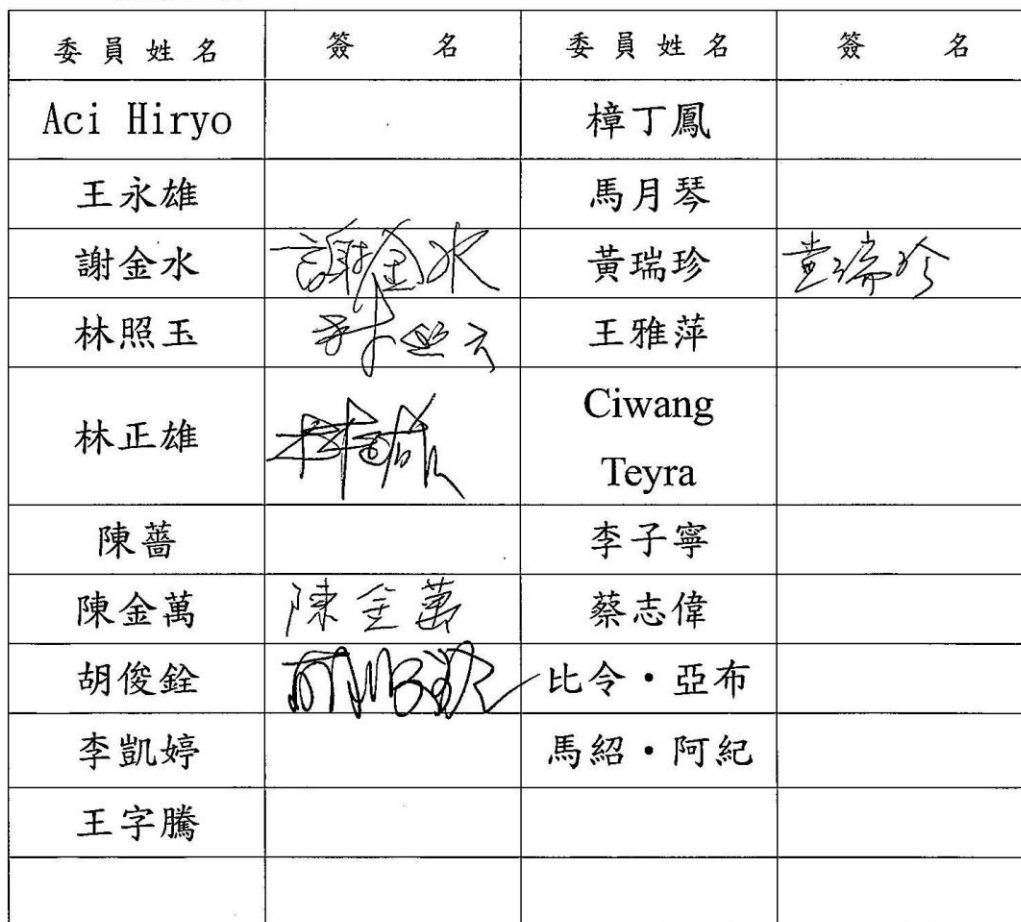 委員姓名 簽名 委員姓名 簽名
Aci Hiryo 樟丁鳳
王永雄 馬月琴
謝金水 謝金水 黃瑞珍 黃瑞珍
林照玉 林照玉 王雅萍
林正雄 林正雄 Ciwang
Teyra
陳薔 李子寧
陳金萬 陳金萬 蔡志偉
胡俊銓 比令・亞布
李凱婷 馬紹・阿紀
王字騰